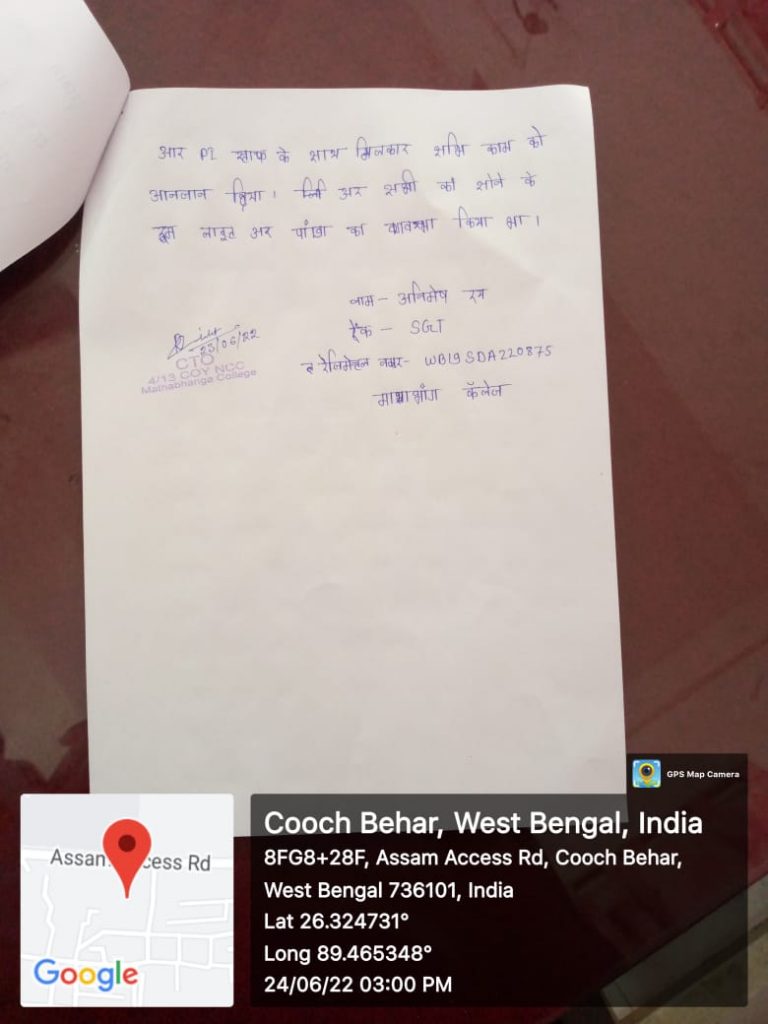 आर PI स्टाफ के साथ मिलकार सभि काम को
आनजान किया। अर सभी को सोने के
रूम लाइट अर पांखा का ब्यवस्था किया था।
नाम - अनिमेष रय
रैंक - SGT
रेजिमेन्टल नम्बर- WB19SDA220875
माथाभांगा कॅलेज
23/06/22
CTO
4/13 COY NCC
Mathabhanga College
GPS Map Camera
Assam Access Rd
Google
Cooch Behar, West Bengal, India
8FG8+28F, Assam Access Rd, Cooch Behar,
West Bengal 736101, India
Lat 26.324731°
Long 89.465348°
24/06/22 03:00 PM